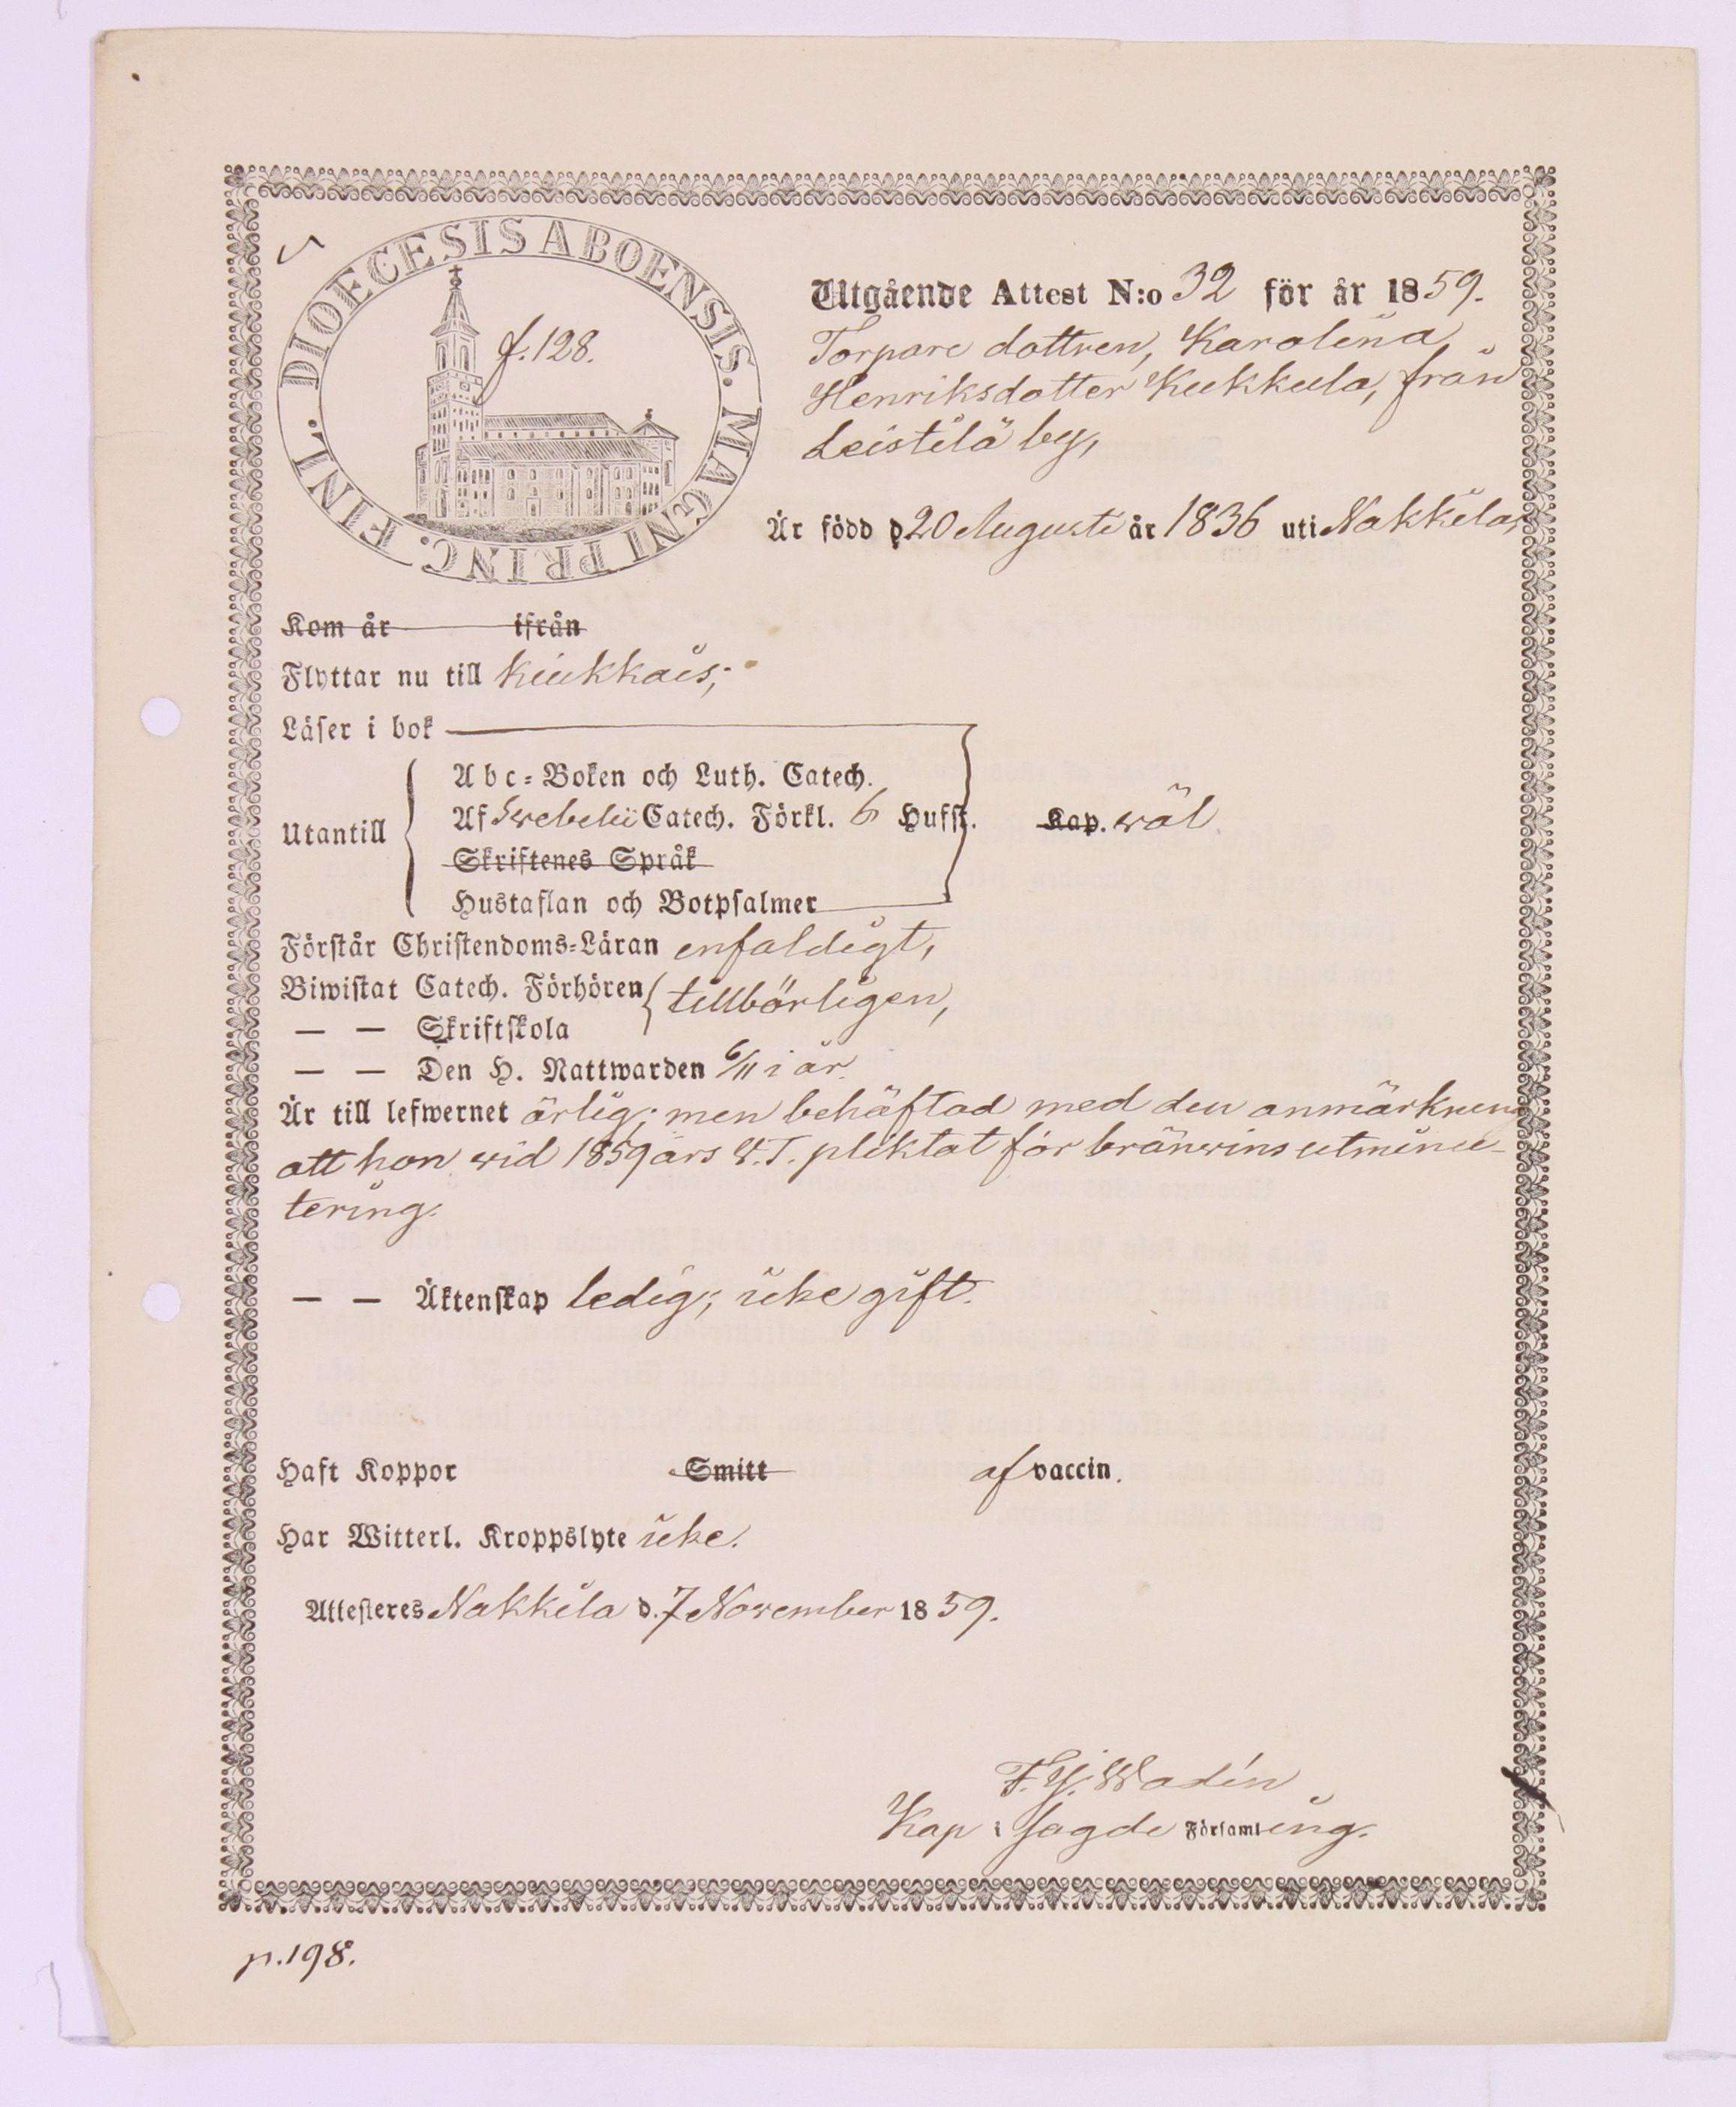 DIOECESIS ABOENSIS. MAGNI PRINC. FINL.
f. 128.
Utgående Attest N:o 32 för år 1859.
Torpare dottren, Karolina
Henriksdotter Kukkula, från
Leistilä by,
Är född d 20 Augusti år 1836 uti Nakkila,
Kom år ifrån
Flyttar nu till Kiukkais;
Läser i bok
Utantill
Abc-Boken och Luth. Catech.
Af Swebelii Catech. Förkl. 6 Hufst. Kap. wäl
Skriftenes Språk
Hustaflan och Botpsalmer
Förstår Christendoms-Läran enfaldigt,
Biwistat Catech. Förhören tillbörligen,
— — Skriftskola
— — Den H. Nattwarden 6/11 i år.
Är till lefwernet ärlig; men behäftad med den anmärkning
att hon wid 1859 års W.T. pliktat för bränwins utminu-
tering.
— — Äktenskap ledig; icke gift.
Haft Koppor Smitt af vaccin.
Har Witterl. Kroppslyte icke.
Attesteres Nakkila d. 7 November 1859.
Wadén
Kap i sagde Församling.
p. 198.